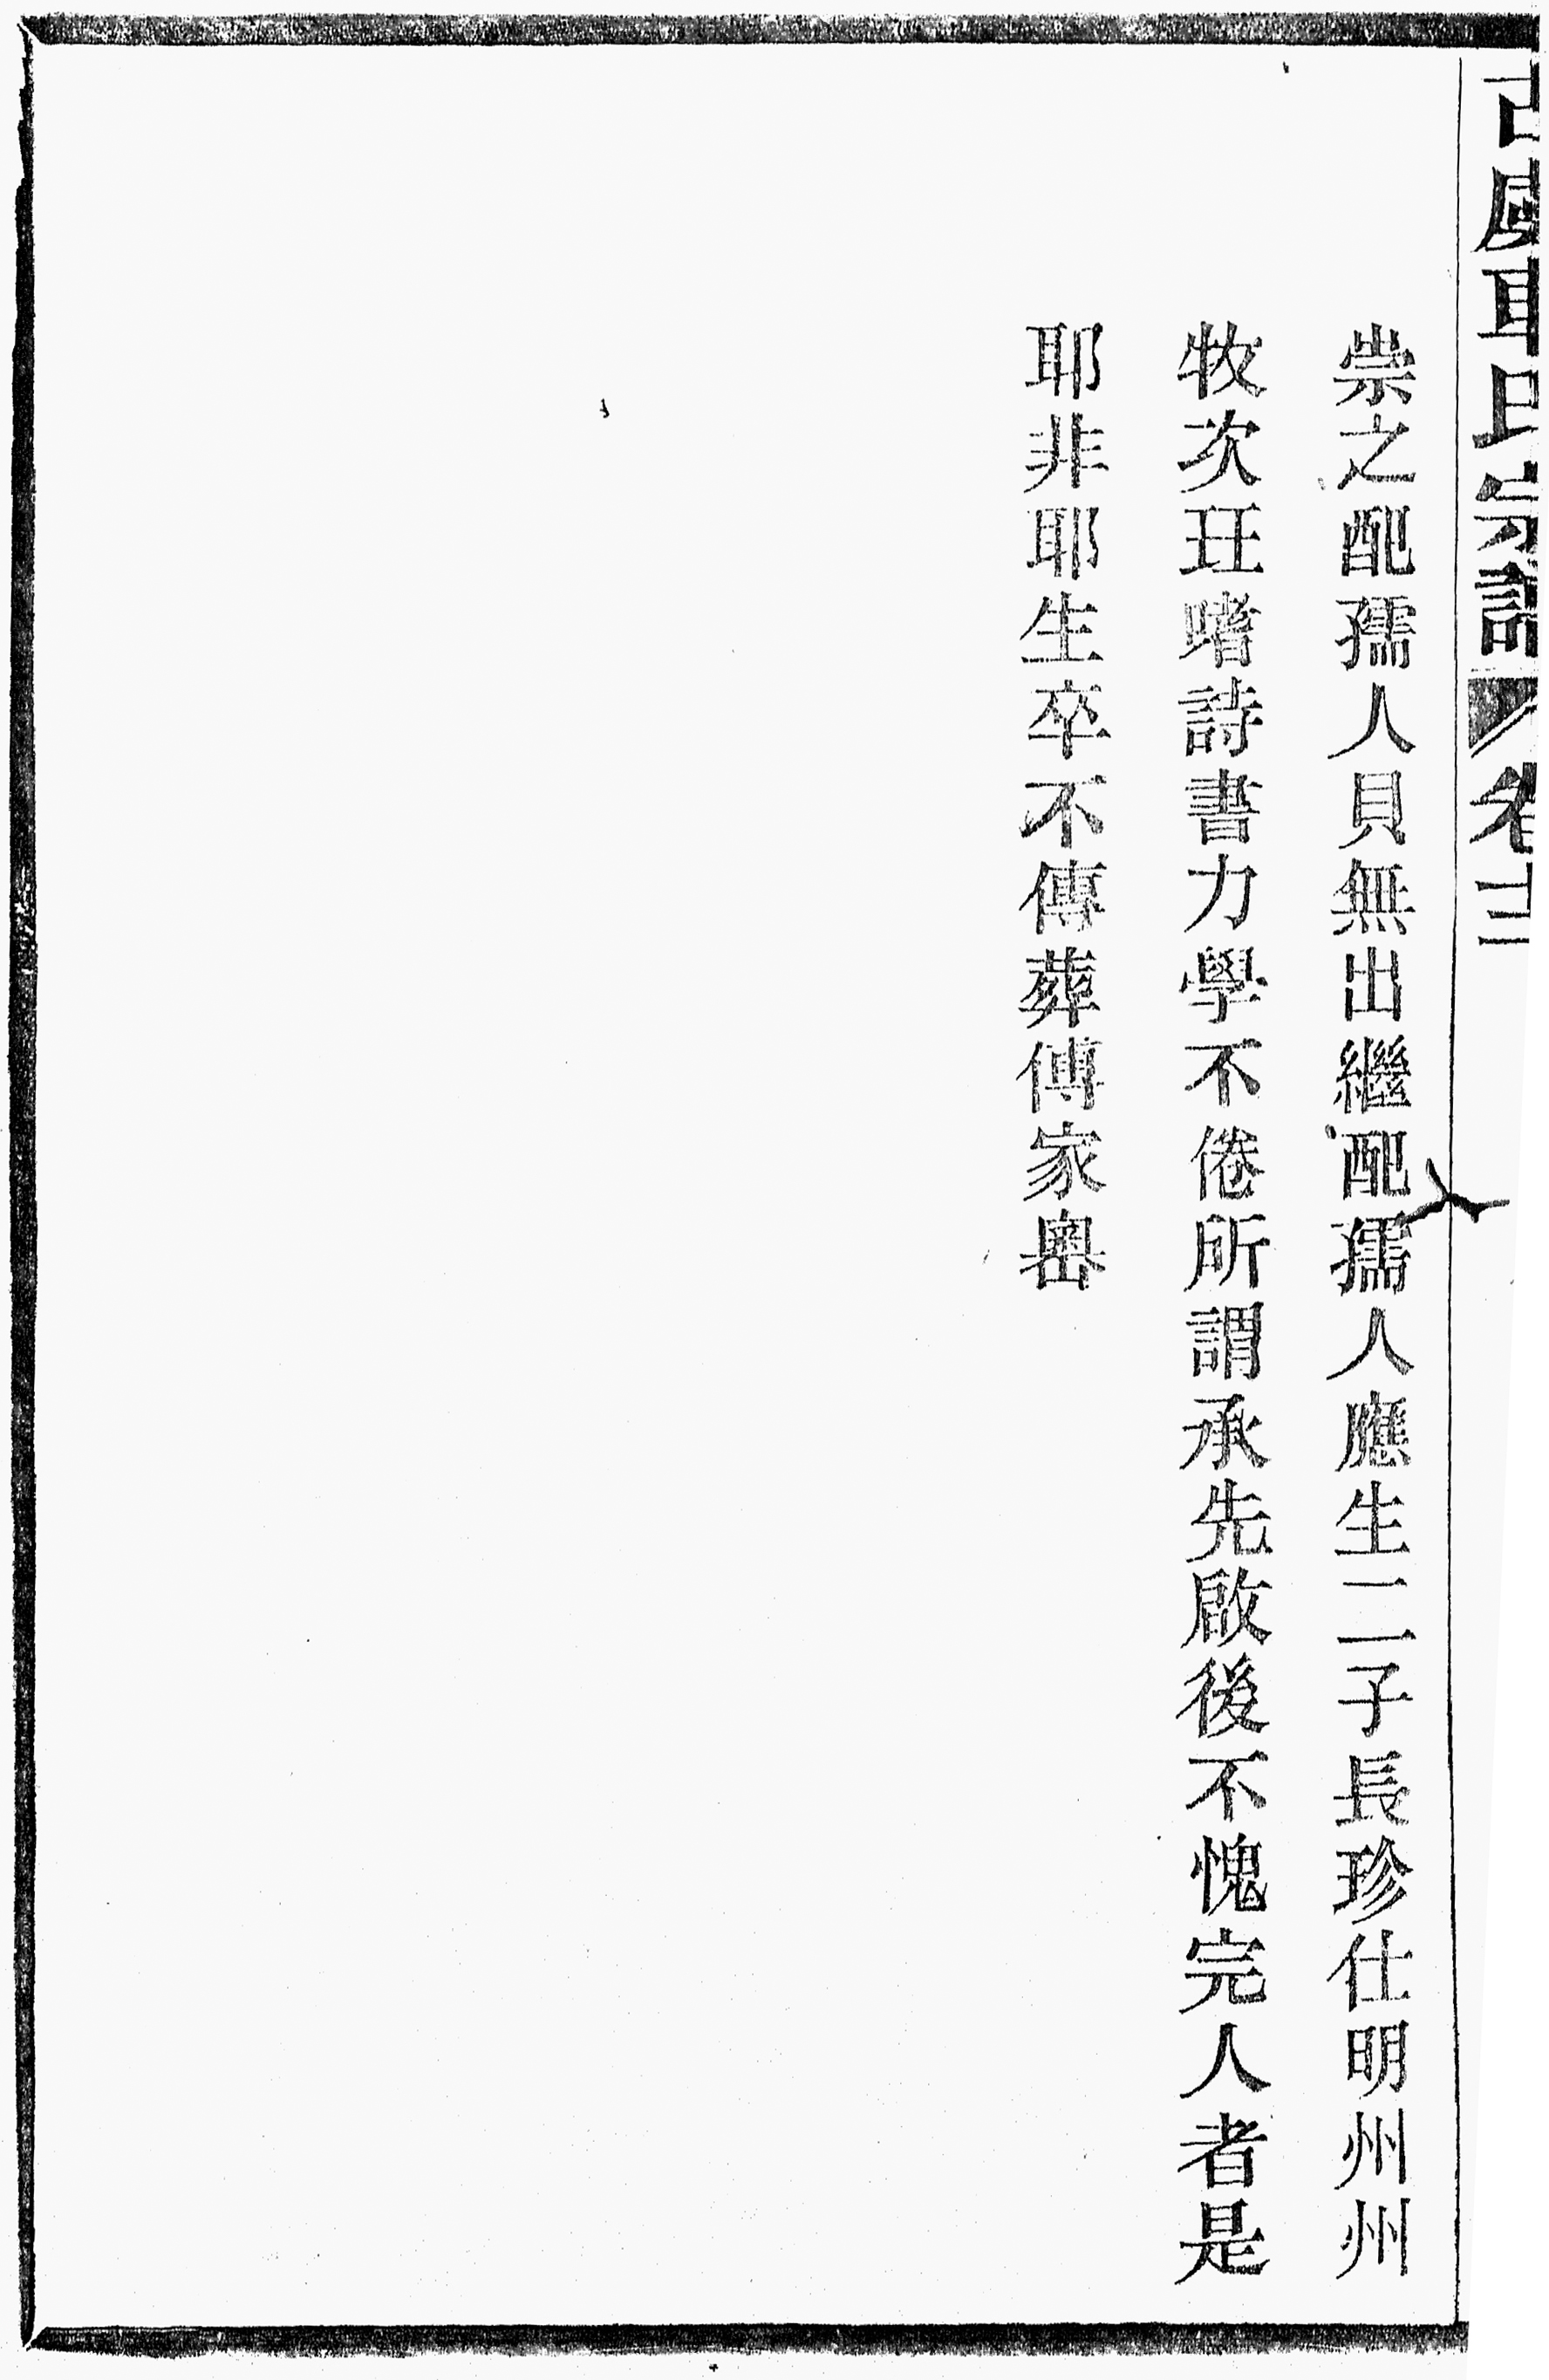 氏宗譜 卷
崇之配孺人貝無出繼配孺人應生二子長珍仕明州州
牧次玨嗜詩書力學不倦所謂承先啟後不愧完人者是
耶非耶生卒不傳葬傅家嶴